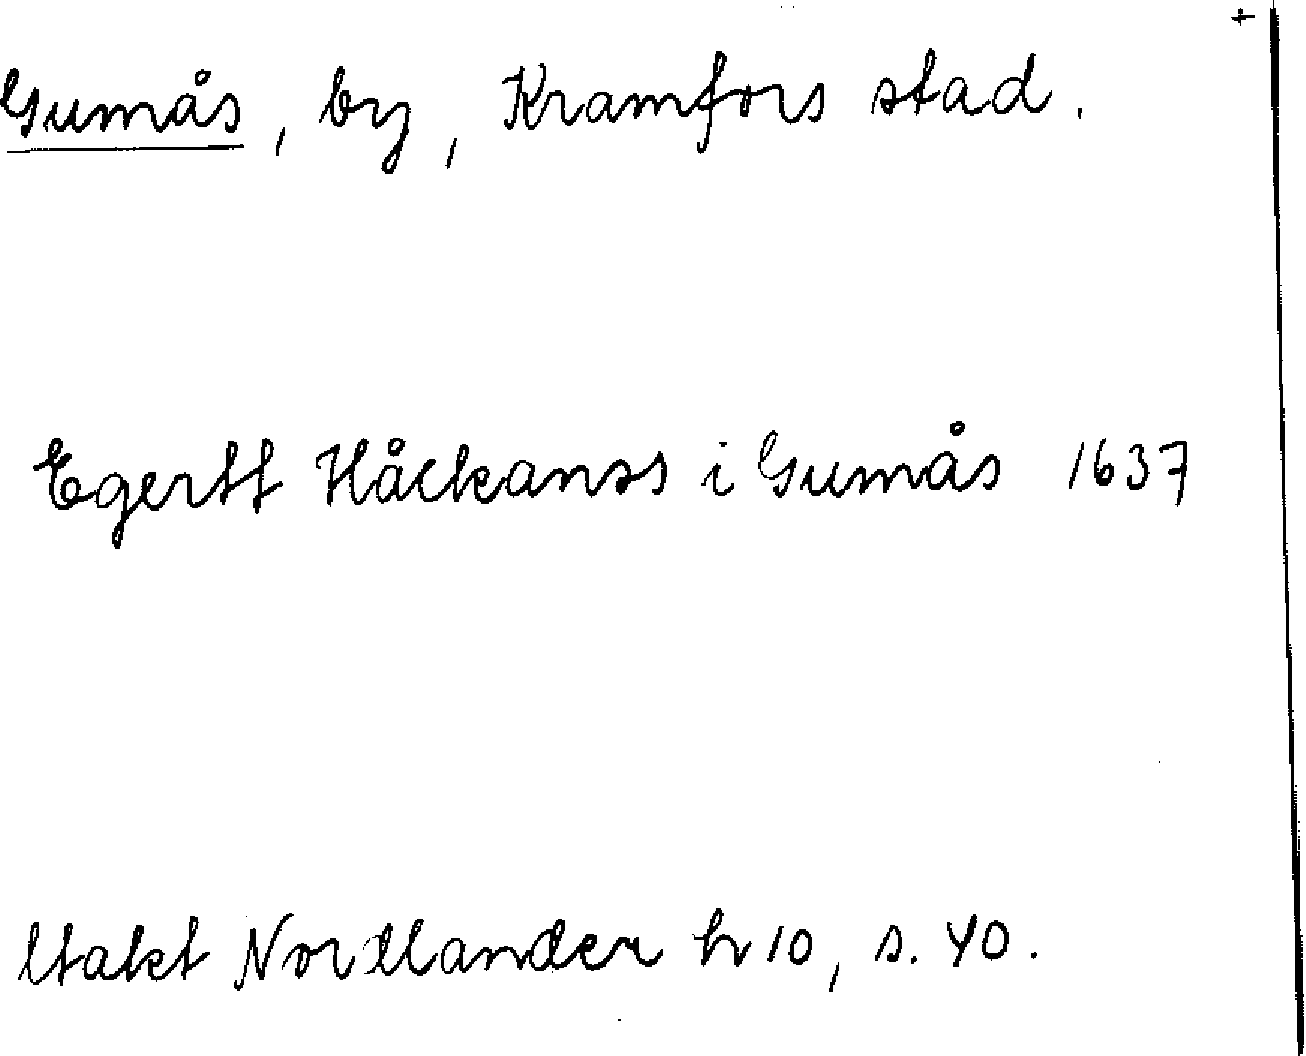 Gumås, by, Kramfors stad.
Egertt Håckanss i Gumås 1637
Utakt Nordlander h 10, s. 40.